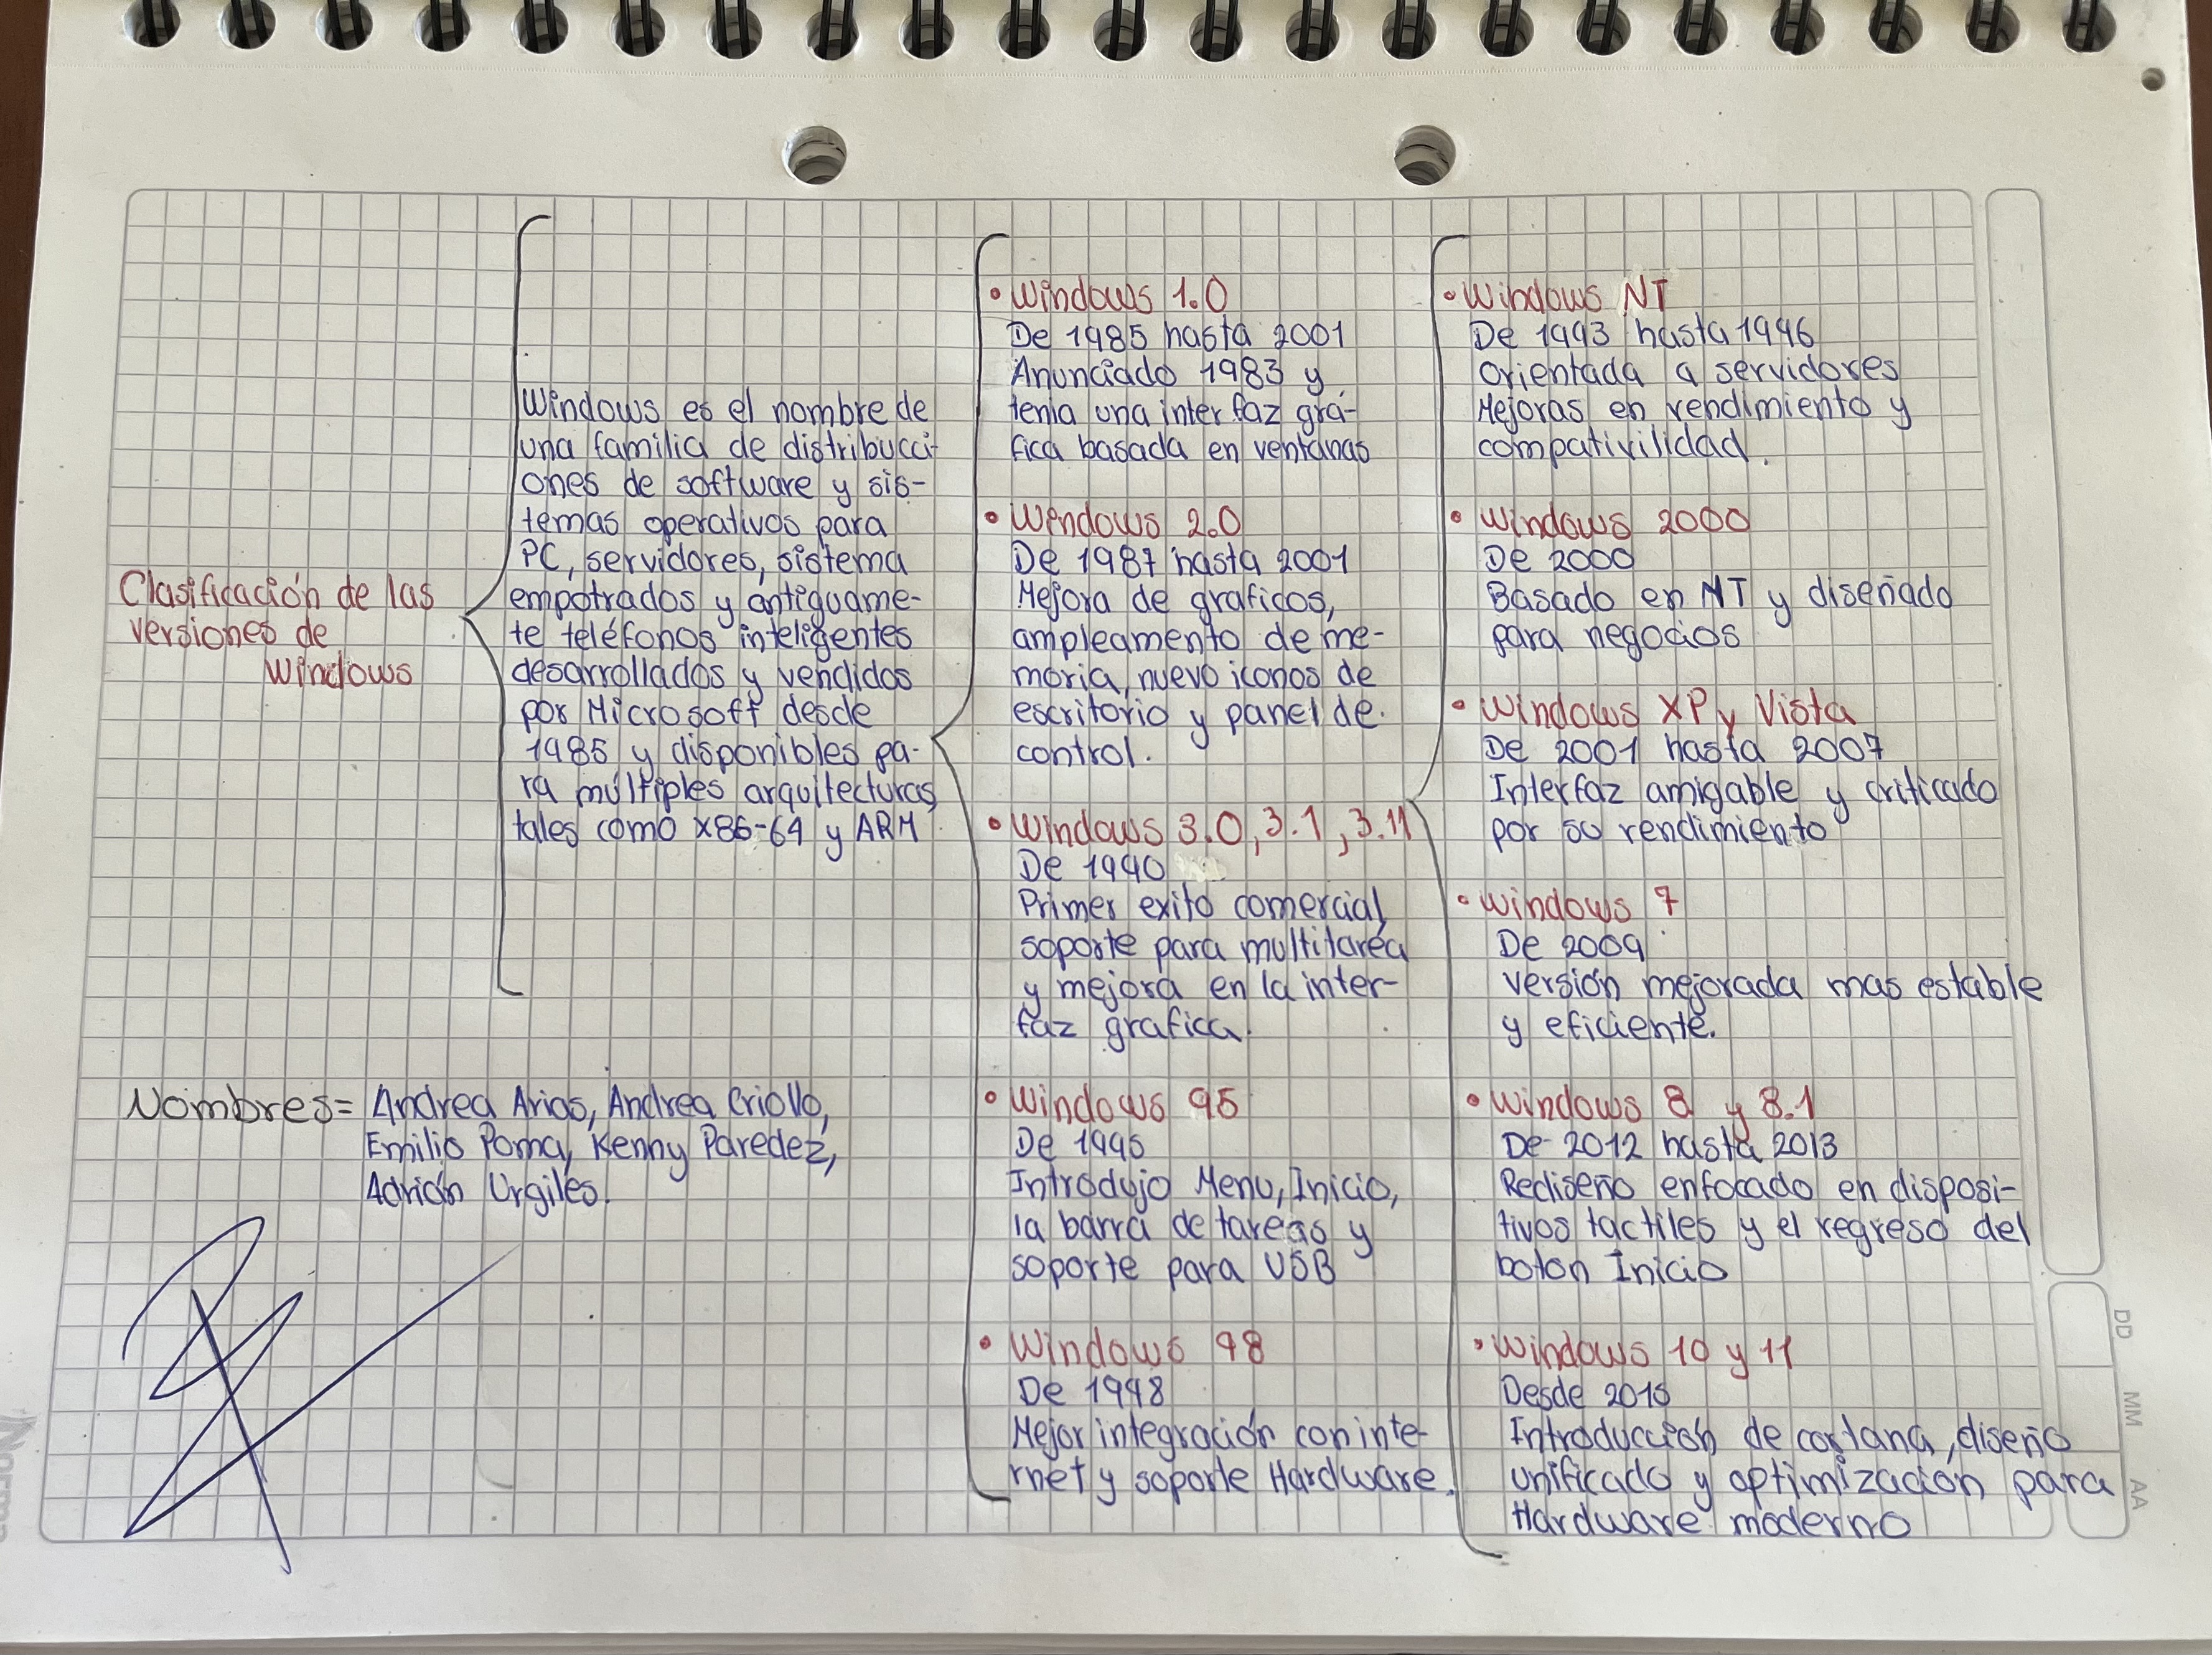 Clasificación de las
versiones de
Windows
Windows es el nombre de
una familia de distribucci-
ones de software y sis-
temas operativos para
PC, servidores, sistema
empotrados y antiguame-
te teléfonos inteligentes
desarrollados y vendidos
por Microsoft desde
1985 y disponibles pa-
ra múltiples arquitecturas
tales como x86-64 y ARM
Nombres= Andrea Arias, Andrea Criollo,
Emilio Poma, Kenny Paredez,
Adrián Urgilés.
• Windows 1.0
De 1985 hasta 2001
Anunciado 1983 y
tenia una interfaz grá-
fica basada en ventanas
• Windows 2.0
De 1987 hasta 2001
Mejora de graficos,
ampleamento de me-
moria, nuevo iconos de
escritorio y panel de
control.
• Windows 3.0, 3.1, 3.11
De 1990
Primer exito comercial,
soporte para multitarea
y mejora en la inter-
faz grafica.
• Windows 95
De 1995
Introdujo Menu, Inicio,
la barra de tareas y
soporte para USB
• Windows 98
De 1998
Mejor integración con inte-
rnet y soporte Hardware.
• Windows NT
De 1993 hasta 1996
Orientada a servidores
Mejoras en rendimiento y
compativilidad.
• Windows 2000
De 2000
Basado en NT y diseñado
para negocios
• Windows XP y Vista
De 2001 hasta 2007
Interfaz amigable y criticado
por su rendimiento
• Windows 7
De 2009
versión mejorada mas estable
y eficiente.
• Windows 8 y 8.1
De 2012 hasta 2013
Rediseño enfocado en disposi-
tivos tactiles y el regreso del
boton Inicio
• Windows 10 y 11
Desde 2015
Introducción de cortana, diseño
unificado y optimización para
Hardware moderno
DD
MM
AA
Norma